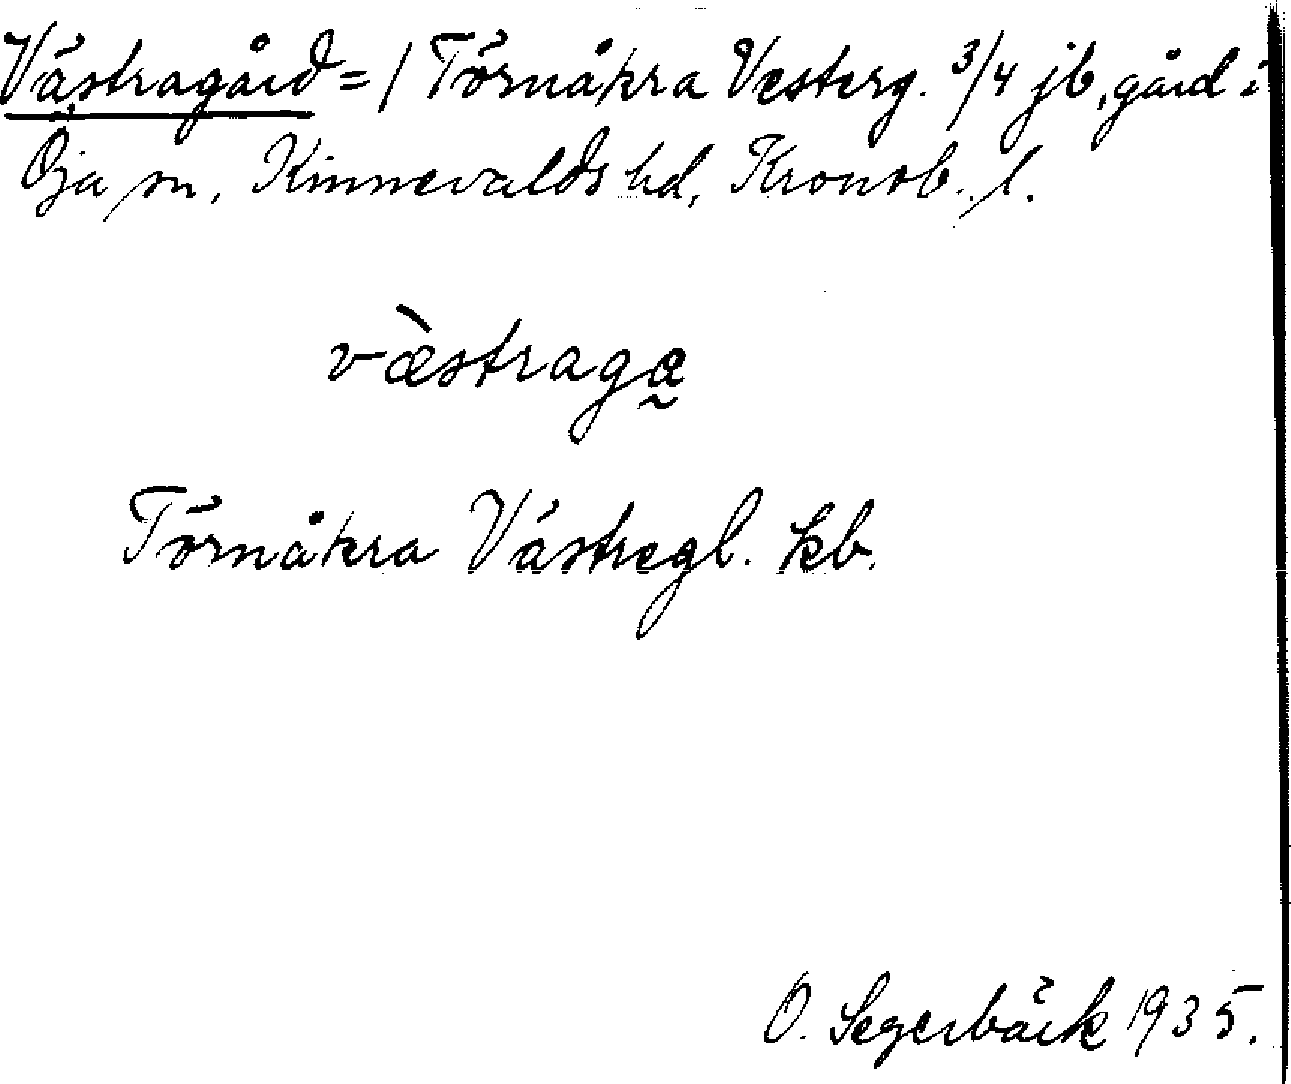 Västragård = / Törnåkra Vesterg. 3/4 jb, gård i
Öja sn, Kinnevalds hd, Kronob. l.
væ̀straga̰
Törnåkra Västregl. kb.
O. Segerbäck 1935.